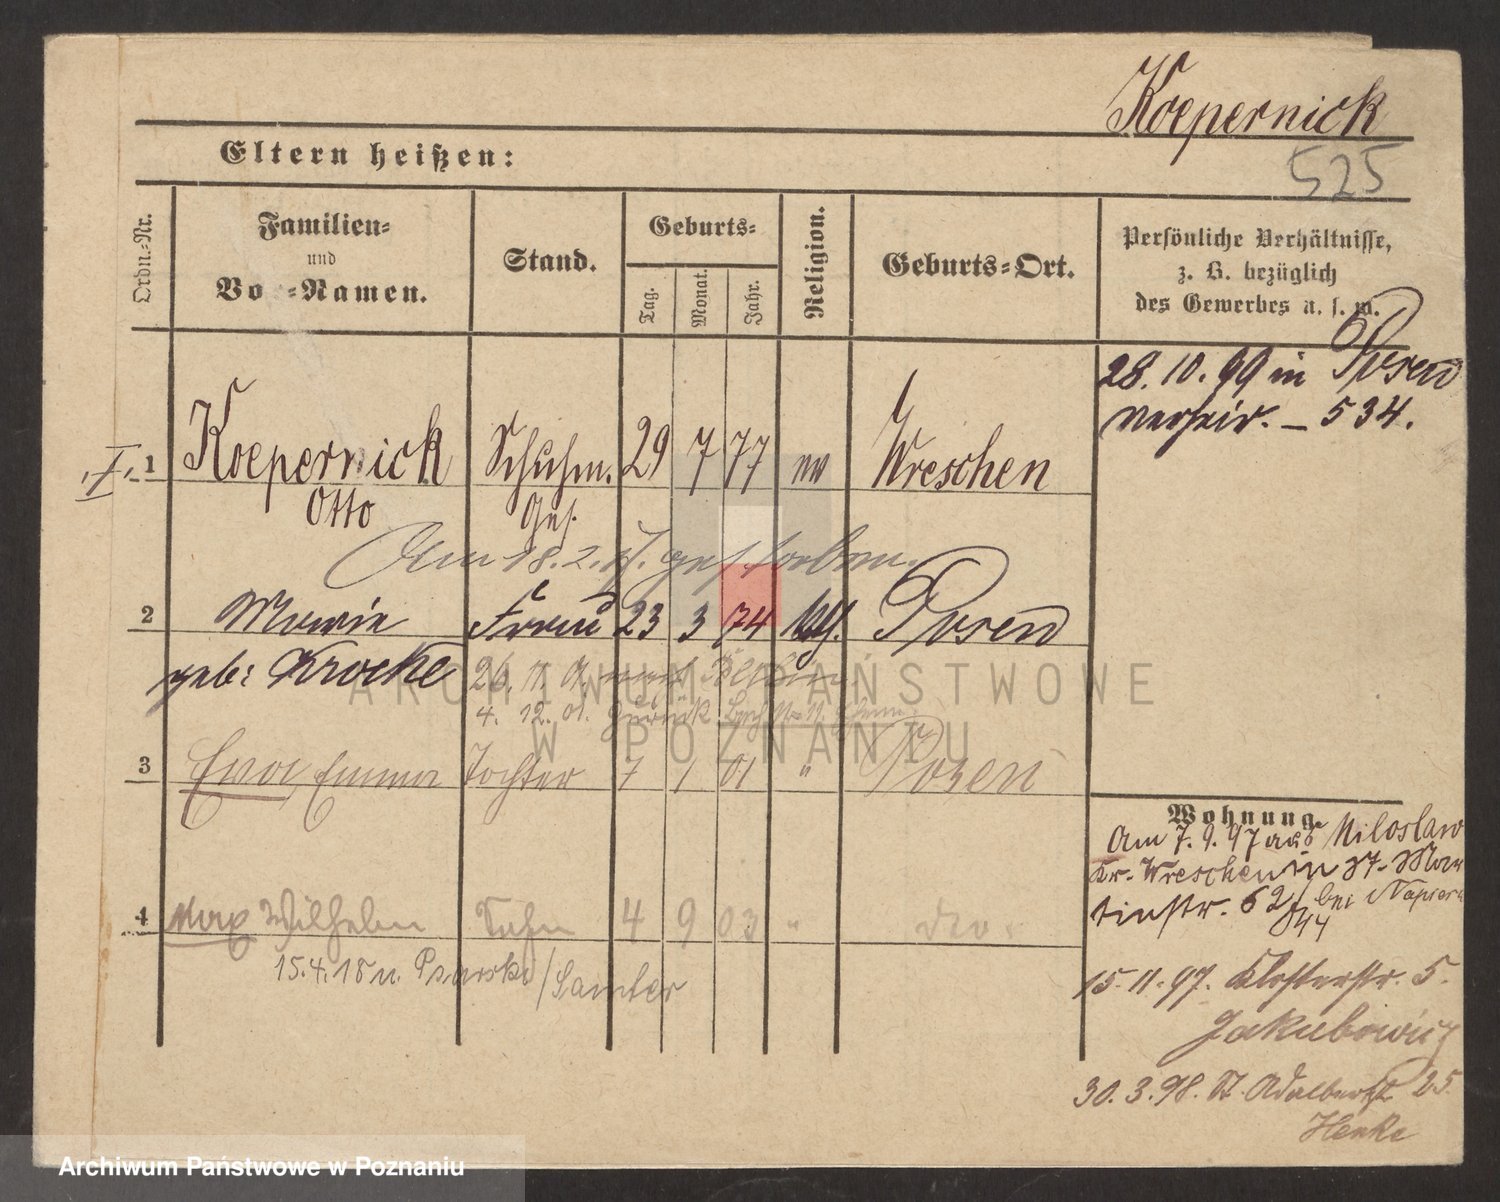 Koepernick
525
Eltern heißen:
Ordn.-Nr.
Familien-
und
Vor-Namen.
Stand.
Geburts-
Tag.
Monat.
Jahr.
Religion.
Geburts-Ort.
Persönliche Verhältnisse,
z. B. bezüglich
des Gewerbes u. s. w.
28. 10. 99 in Posen
verheir. – 534.
I. 1 Koepernick Schuhm. 29 7 77 ev Wreschen
Otto Ges.
Am 18. 2. gestorben.
2 Marie Frau 23 3 74 kth. Posen
geb: Krocke 26. 11. 01.
4. 12. 01. zurück
3 Eva, Emma Tochter 7 1 01 " Posen
4 Max Wilhelm Sohn 4 9 03 " dto.
15.4.18 n. Psarski / Samter
Wohnung.
Am 7. 9. 97 aus Miloslaw
Kr. Wreschen in St. Mar
tinstr. 62 bei Napiera
15. 11. 97. Klosterstr. 5.
Jakubowicz
30. 3. 98. St. Adalbertstr 25
Henke
ARCHIWUM PAŃSTWOWE
W POZNANIU
Archiwum Państwowe w Poznaniu